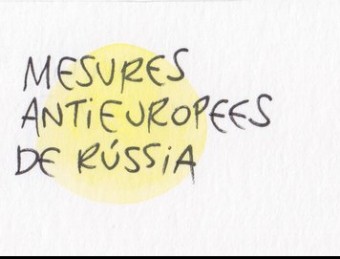 MESURES
ANTIEUROPEES
DE RÚSSIA